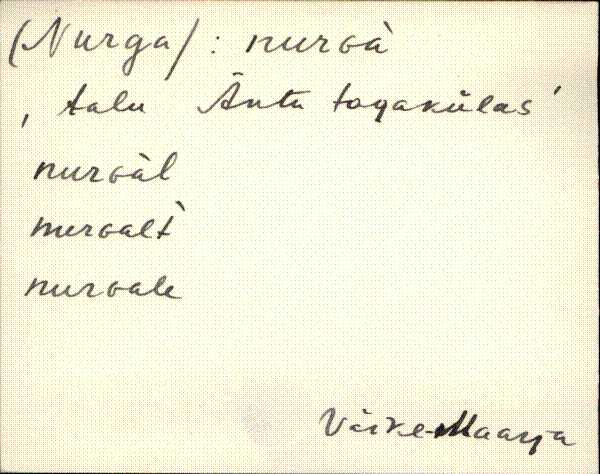 (Nurga) : nurcà
, talu Äntu tagakülas '
nurcàl
nurcalt̀
nurcale
Väike-Maarja